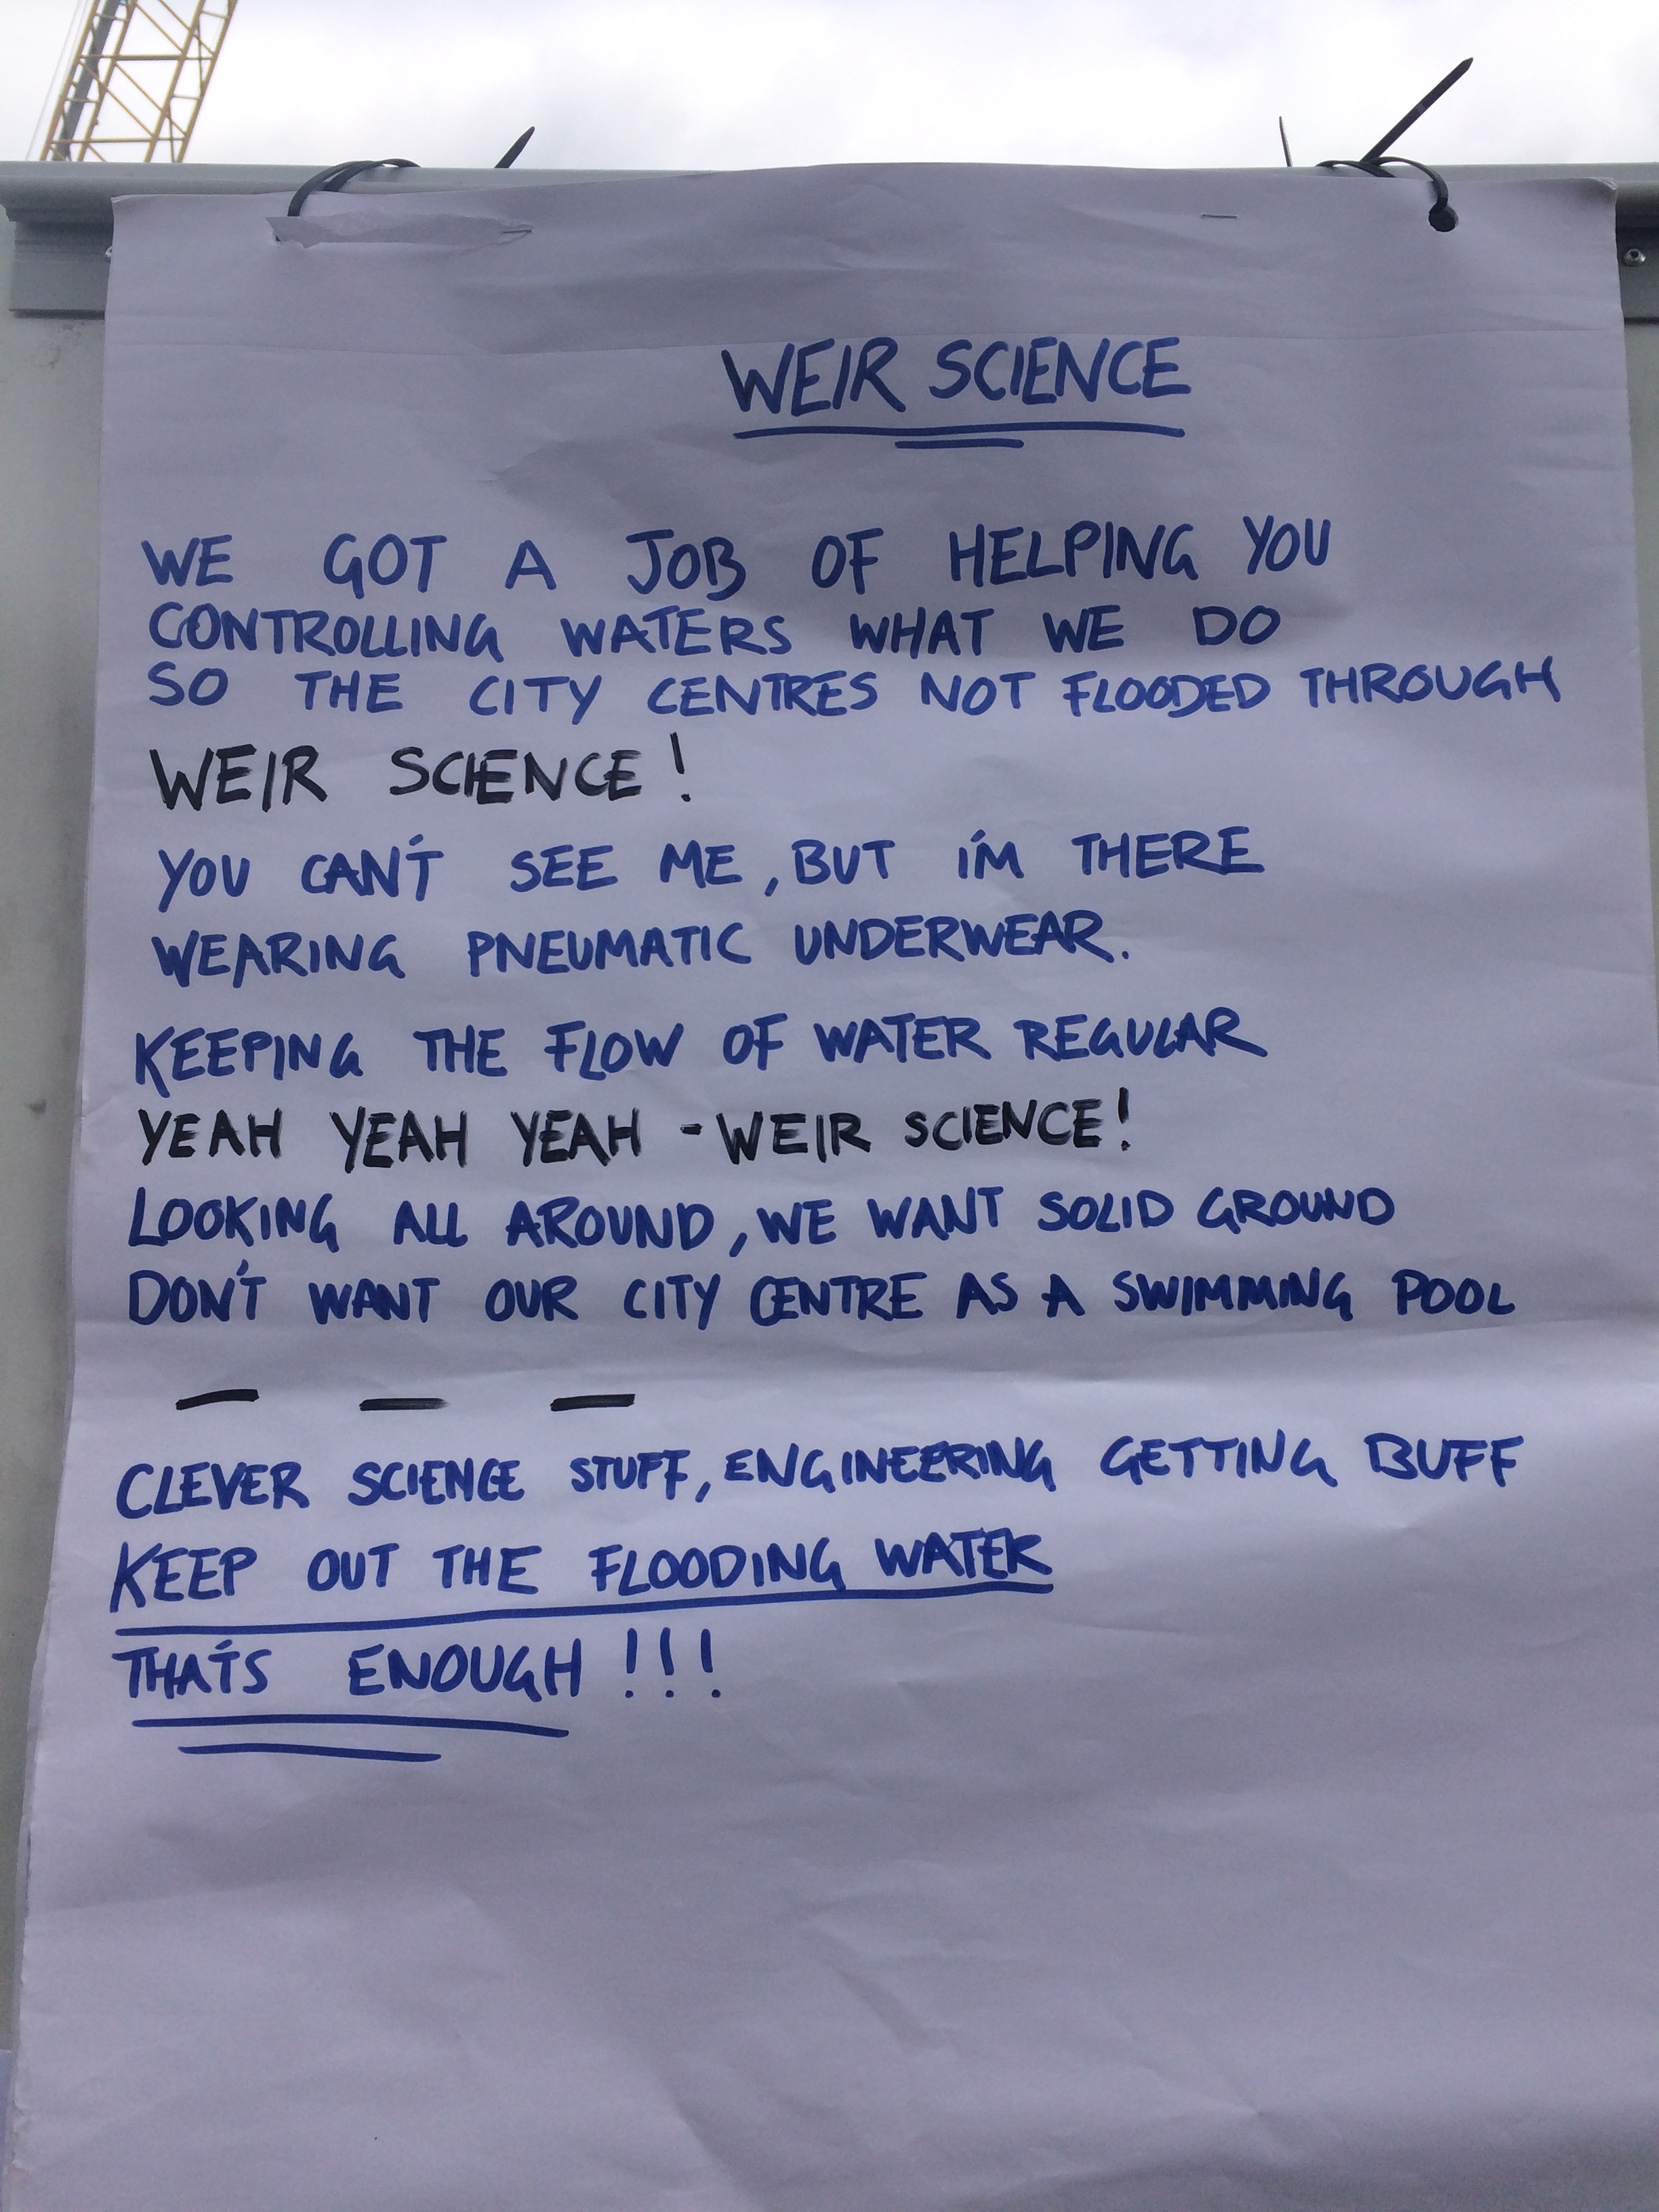 WEIR SCIENCE
WE GOT A JOB OF HELPING YOU
CONTROLLING WATERS WHAT WE DO
SO THE CITY CENTRES NOT FLOODED THROUGH
WEIR SCIENCE!
YOU CAN'T SEE ME, BUT I'M THERE
WEARING PNEUMATIC UNDERWEAR.
KEEPING THE FLOW OF WATER REGULAR
YEAH YEAH YEAH - WEIR SCIENCE!
LOOKING ALL AROUND, WE WANT SOLID GROUND
DON'T WANT OUR CITY CENTRE AS A SWIMMING POOL
— — —
CLEVER SCIENCE STUFF, ENGINEERING GETTING BUFF
KEEP OUT THE FLOODING WATER
THAT'S ENOUGH!!!